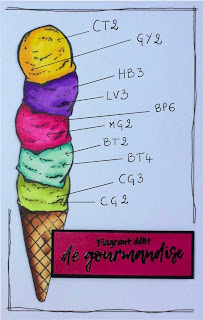 CT2
GY2
HB3
LV3
BP6
MG2
BT2
BT4
CG3
CG2
Flagrant délit
de gourmandise